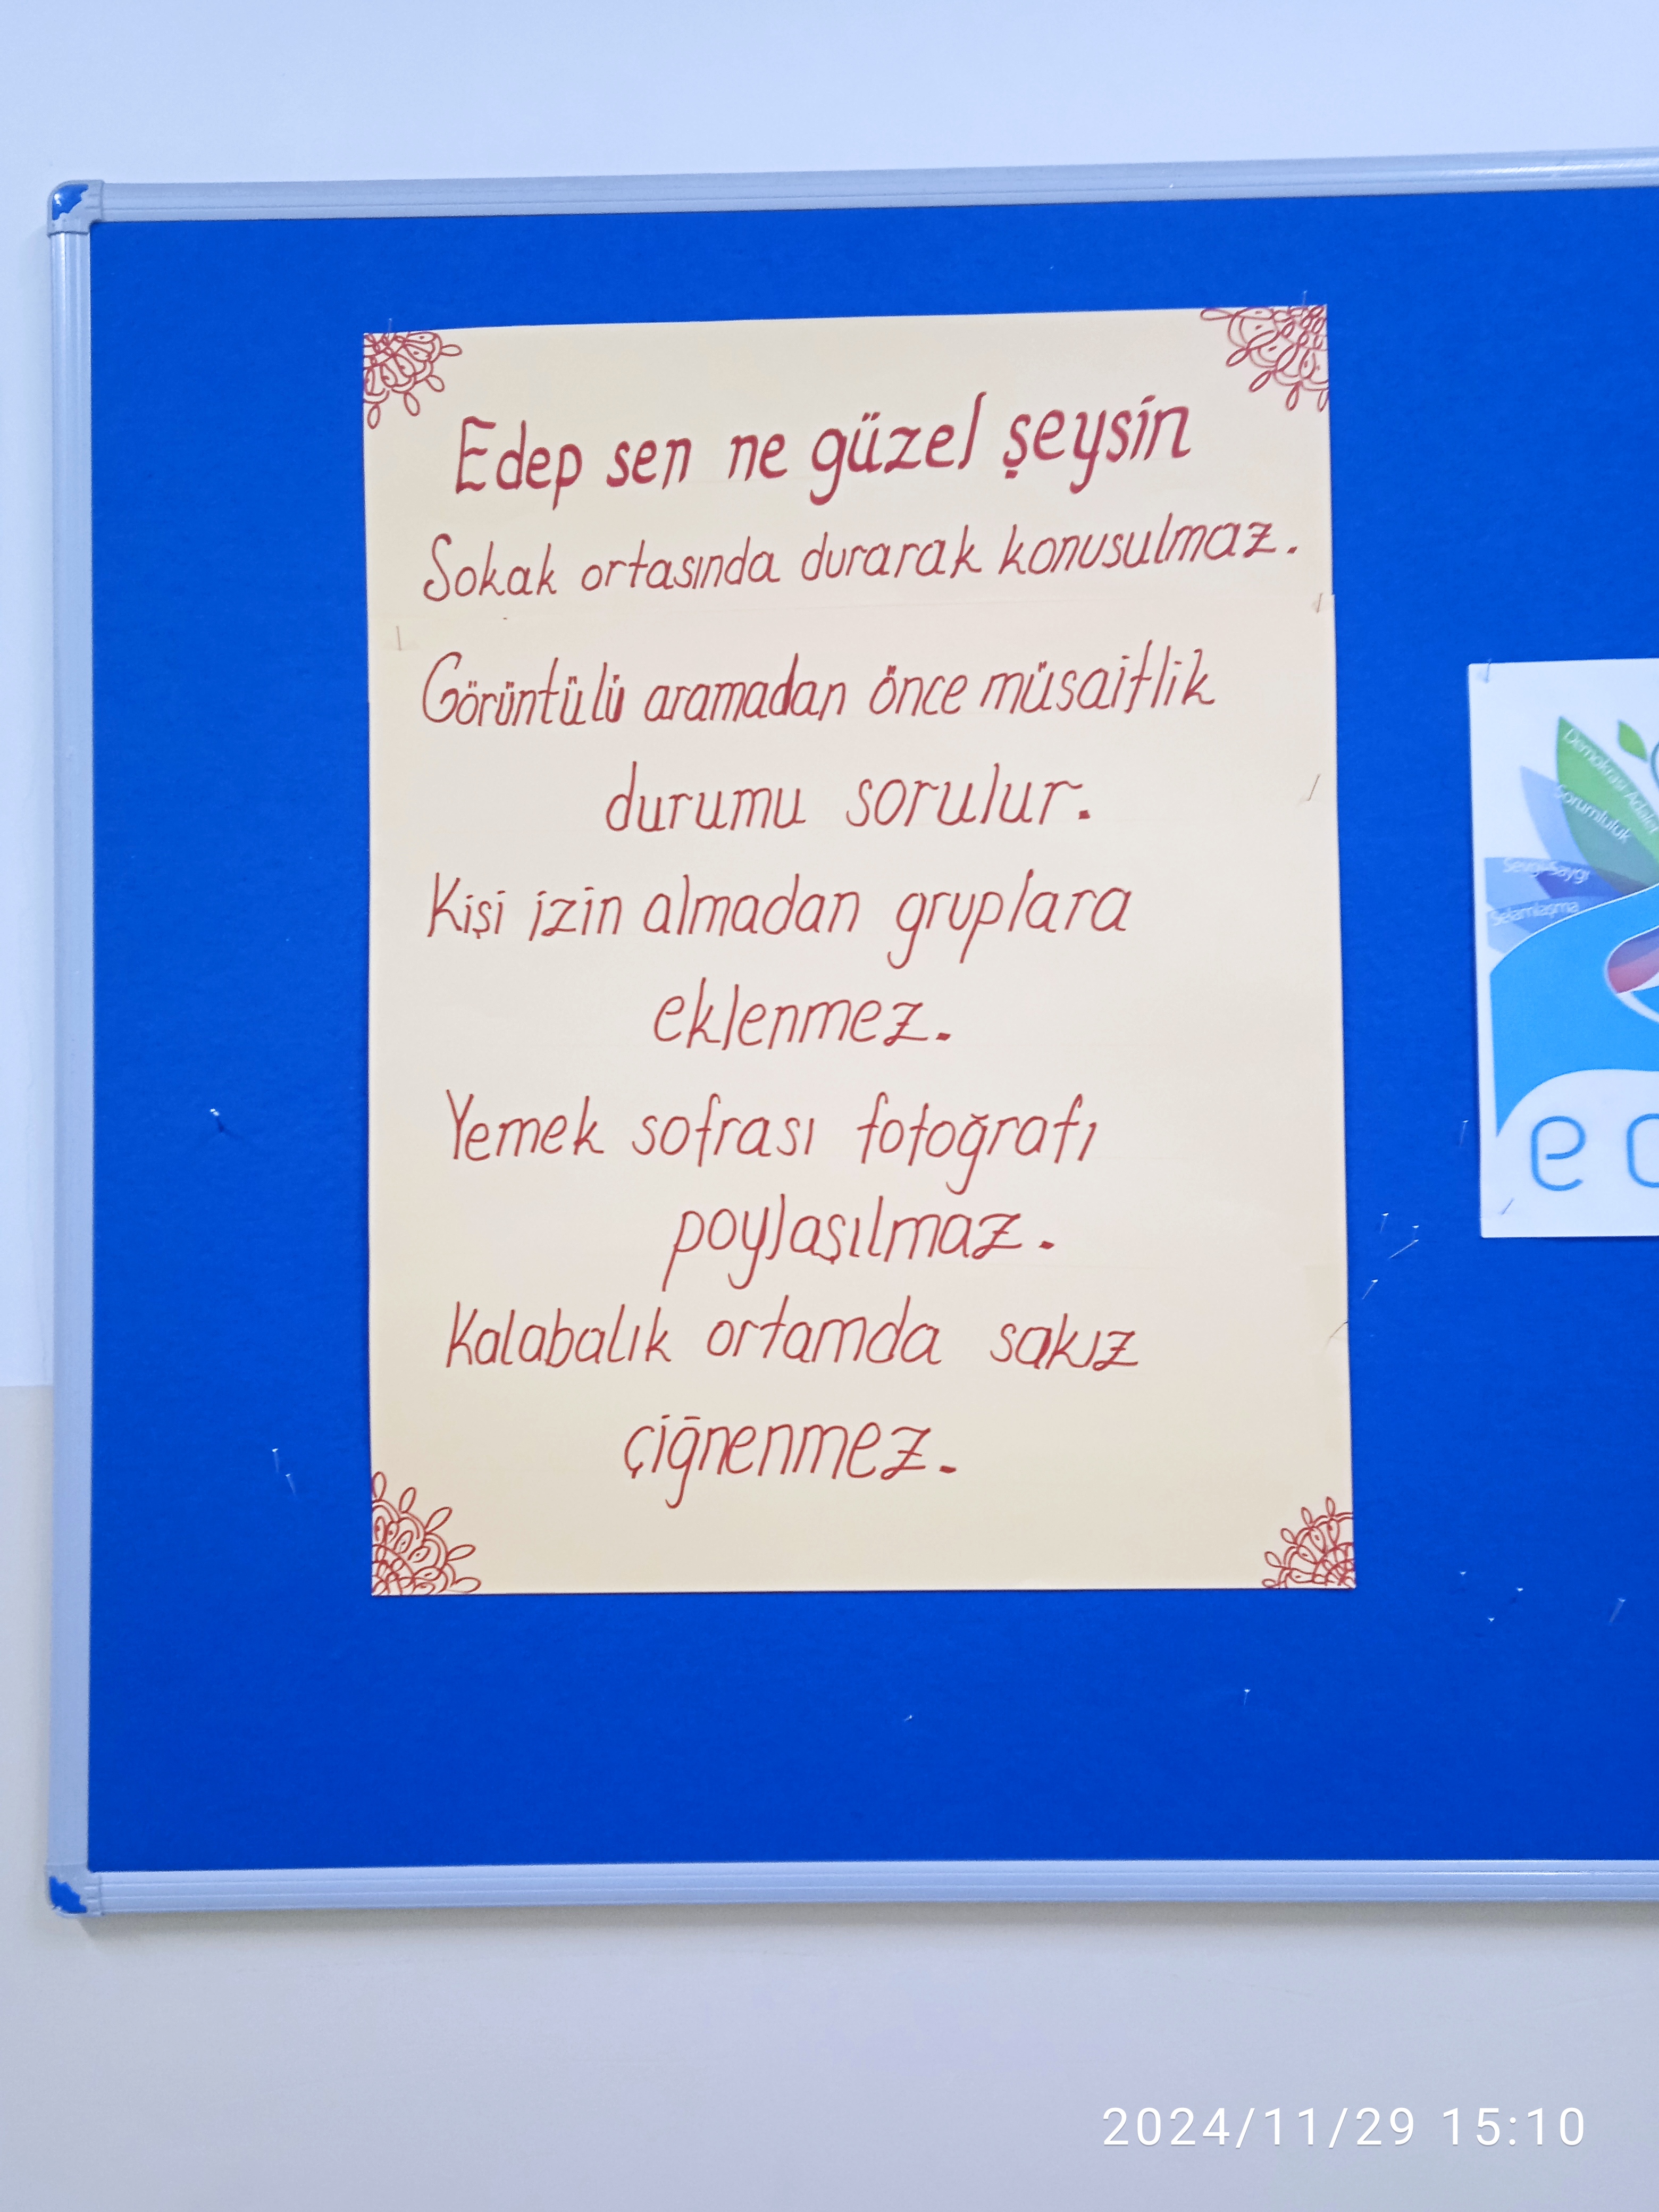 Edep sen ne güzel şeysin
Sokak ortasında durarak konusulmaz.
Görüntülü aramadan önce müsaitlik
durumu sorulur.
Kişi izin almadan gruplara
eklenmez.
Yemek sofrası fotoğrafı
poylaşılmaz.
Kalabalık ortamda sakız
çiğnenmez.
Demokrasi-Adalet
Sorumluluk
Sevgi-Saygı
Selamlaşma
e
2024/11/29 15:10